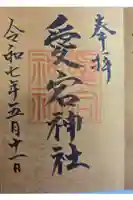 奉拝
愛宕神社
令和七年五月十一日